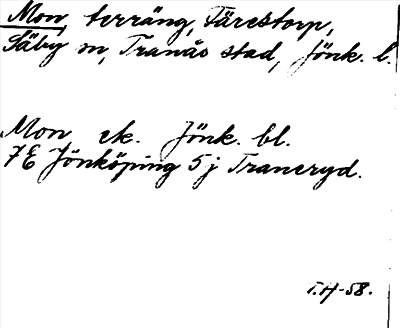 Mon, terräng, Färestorp,
Säby sn, Tranås stad, Jönk. l.
Mon ek. Jönk. bl.
7E Jönköping 5j Traneryd.
T.H-58.